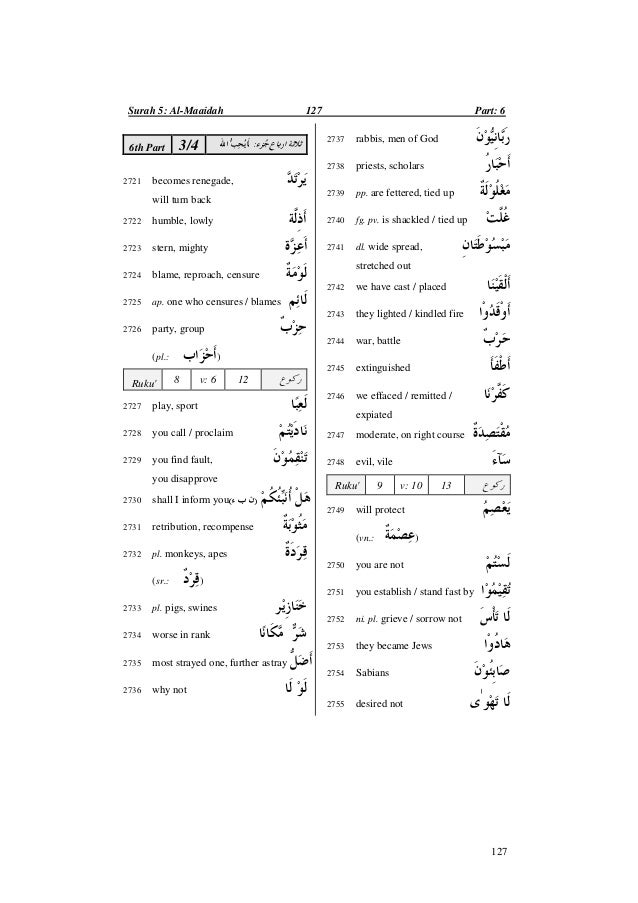 Surah 5: Al-Maaidah 127 Part: 6
6th Part 3/4 ثلاثة ارباع جُزء: لَا يُحِبُّ اللهُ
2721 becomes renegade, يَرْتَدَّ
will turn back
2722 humble, lowly أَذِلَّةٍ
2723 stern, mighty أَعِزَّةٍ
2724 blame, reproach, censure لَوْمَةَ
2725 ap. one who censures / blames لَائِمٍ
2726 party, group حِزْبٌ
(pl.: أَحْزَابٌ)
Ruku' 8 v: 6 12 ركوع
2727 play, sport لَعِبًا
2728 you call / proclaim نَادَيْتُمْ
2729 you find fault, تَنْقِمُوْنَ
you disapprove
2730 shall I inform you(ن ب ء) هَلْ أُنَبِّئُكُمْ
2731 retribution, recompense مَثُوْبَةً
2732 pl. monkeys, apes قِرَدَةٌ
(sr.: قِرْدٌ)
2733 pl. pigs, swines خَنَازِيْرَ
2734 worse in rank شَرٌّ مَّكَانًا
2735 most strayed one, further astray أَضَلُّ
2736 why not لَوْ لَا
2737 rabbis, men of God رَبَّانِيُّوْنَ
2738 priests, scholars أَحْبَارُ
2739 pp. are fettered, tied up مَغْلُوْلَةٌ
2740 fg. pv. is shackled / tied up غُلَّتْ
2741 dl. wide spread, مَبْسُوْطَتَانِ
stretched out
2742 we have cast / placed أَلْقَيْنَا
2743 they lighted / kindled fire أَوْقَدُوْا
2744 war, battle حَرْبٌ
2745 extinguished أَطْفَأَ
2746 we effaced / remitted / كَفَّرْنَا
expiated
2747 moderate, on right course مُقْتَصِدَةٌ
2748 evil, vile سَآءَ
Ruku' 9 v: 10 13 ركوع
2749 will protect يَعْصِمُ
(vn.: عِصْمَةٌ)
2750 you are not لَسْتُمْ
2751 you establish / stand fast by تُقِيْمُوْا
2752 ni. pl. grieve / sorrow not لَا تَأْسَ
2753 they became Jews هَادُوْا
2754 Sabians صَابِئُوْنَ
2755 desired not لَا تَهْوٰى
127